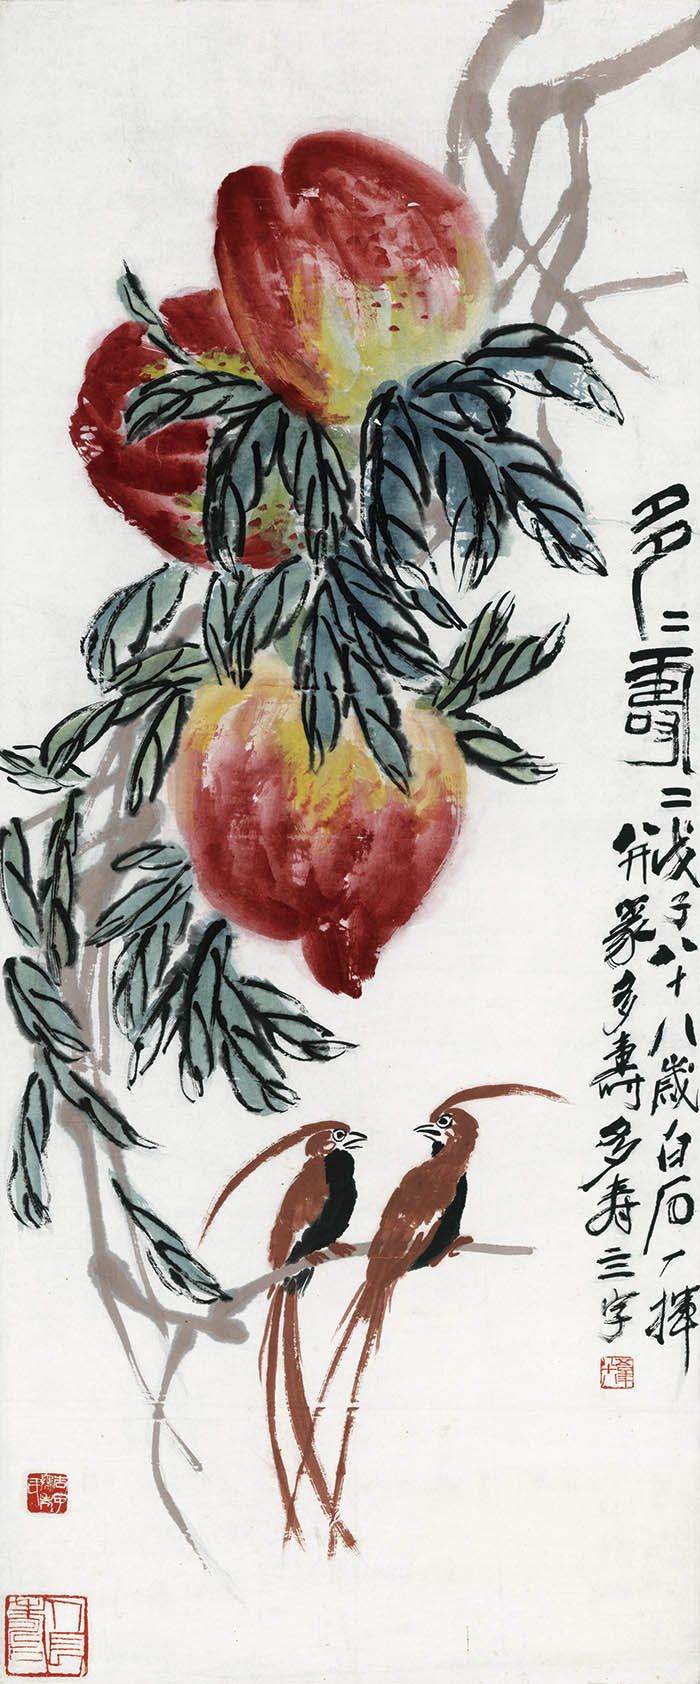 多二壽二
戊子八十八歲白石一揮
并篆多壽多寿三字
人長壽